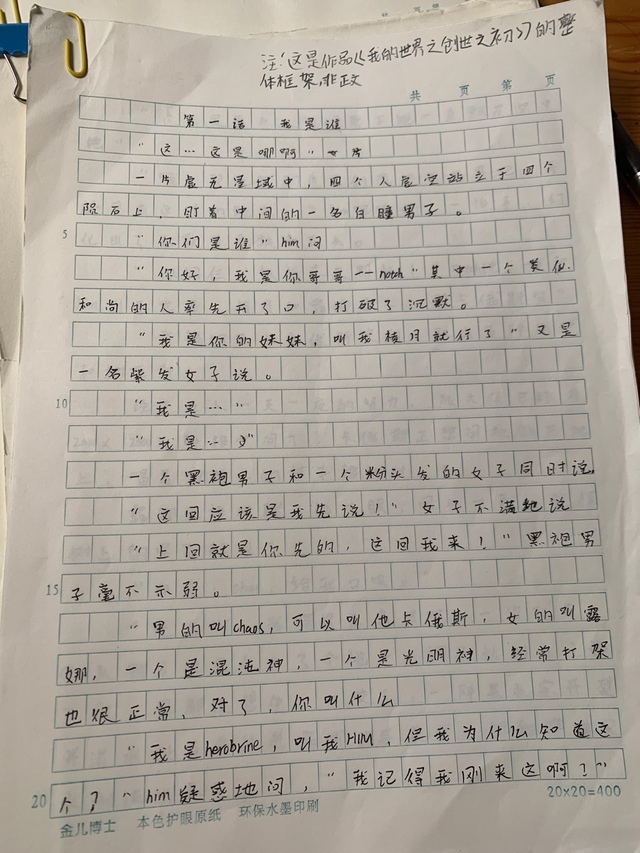 注:这是作品《我的世界之创世之初》的整
体框架,非正文
共 页 第 页
第一话 我是谁
"这…这是哪啊"
一片虚无混域中,四个人悬空站立于四个
陨石上,盯着中间的一名白瞳男子。
5 "你们是谁"him问
"你好,我是你哥哥——notch"其中一个类似
和尚的人率先开了口,打破了沉默。
"我是你的妹妹,叫我棱月就行了"又是
一名紫发女子说。
10 "我是…"
"我是…"
一个黑袍男子和一个粉头发的女子同时说,
"这回应该是我先说!"女子不满地说
"上回就是你先的,这回我来!"黑袍男
15 子毫不示弱。
"男的叫chaos,可以叫他卡俄斯,女的叫露
娜,一个是混沌神,一个是光明神,经常打架
也很正常,对了,你叫什么
"我是herobrine,叫我HIM,但我为什么知道这
20 个?"him疑惑地问,"我记得我刚来这啊?"
金儿博士 本色护眼原纸 环保水墨印刷 20×20=400